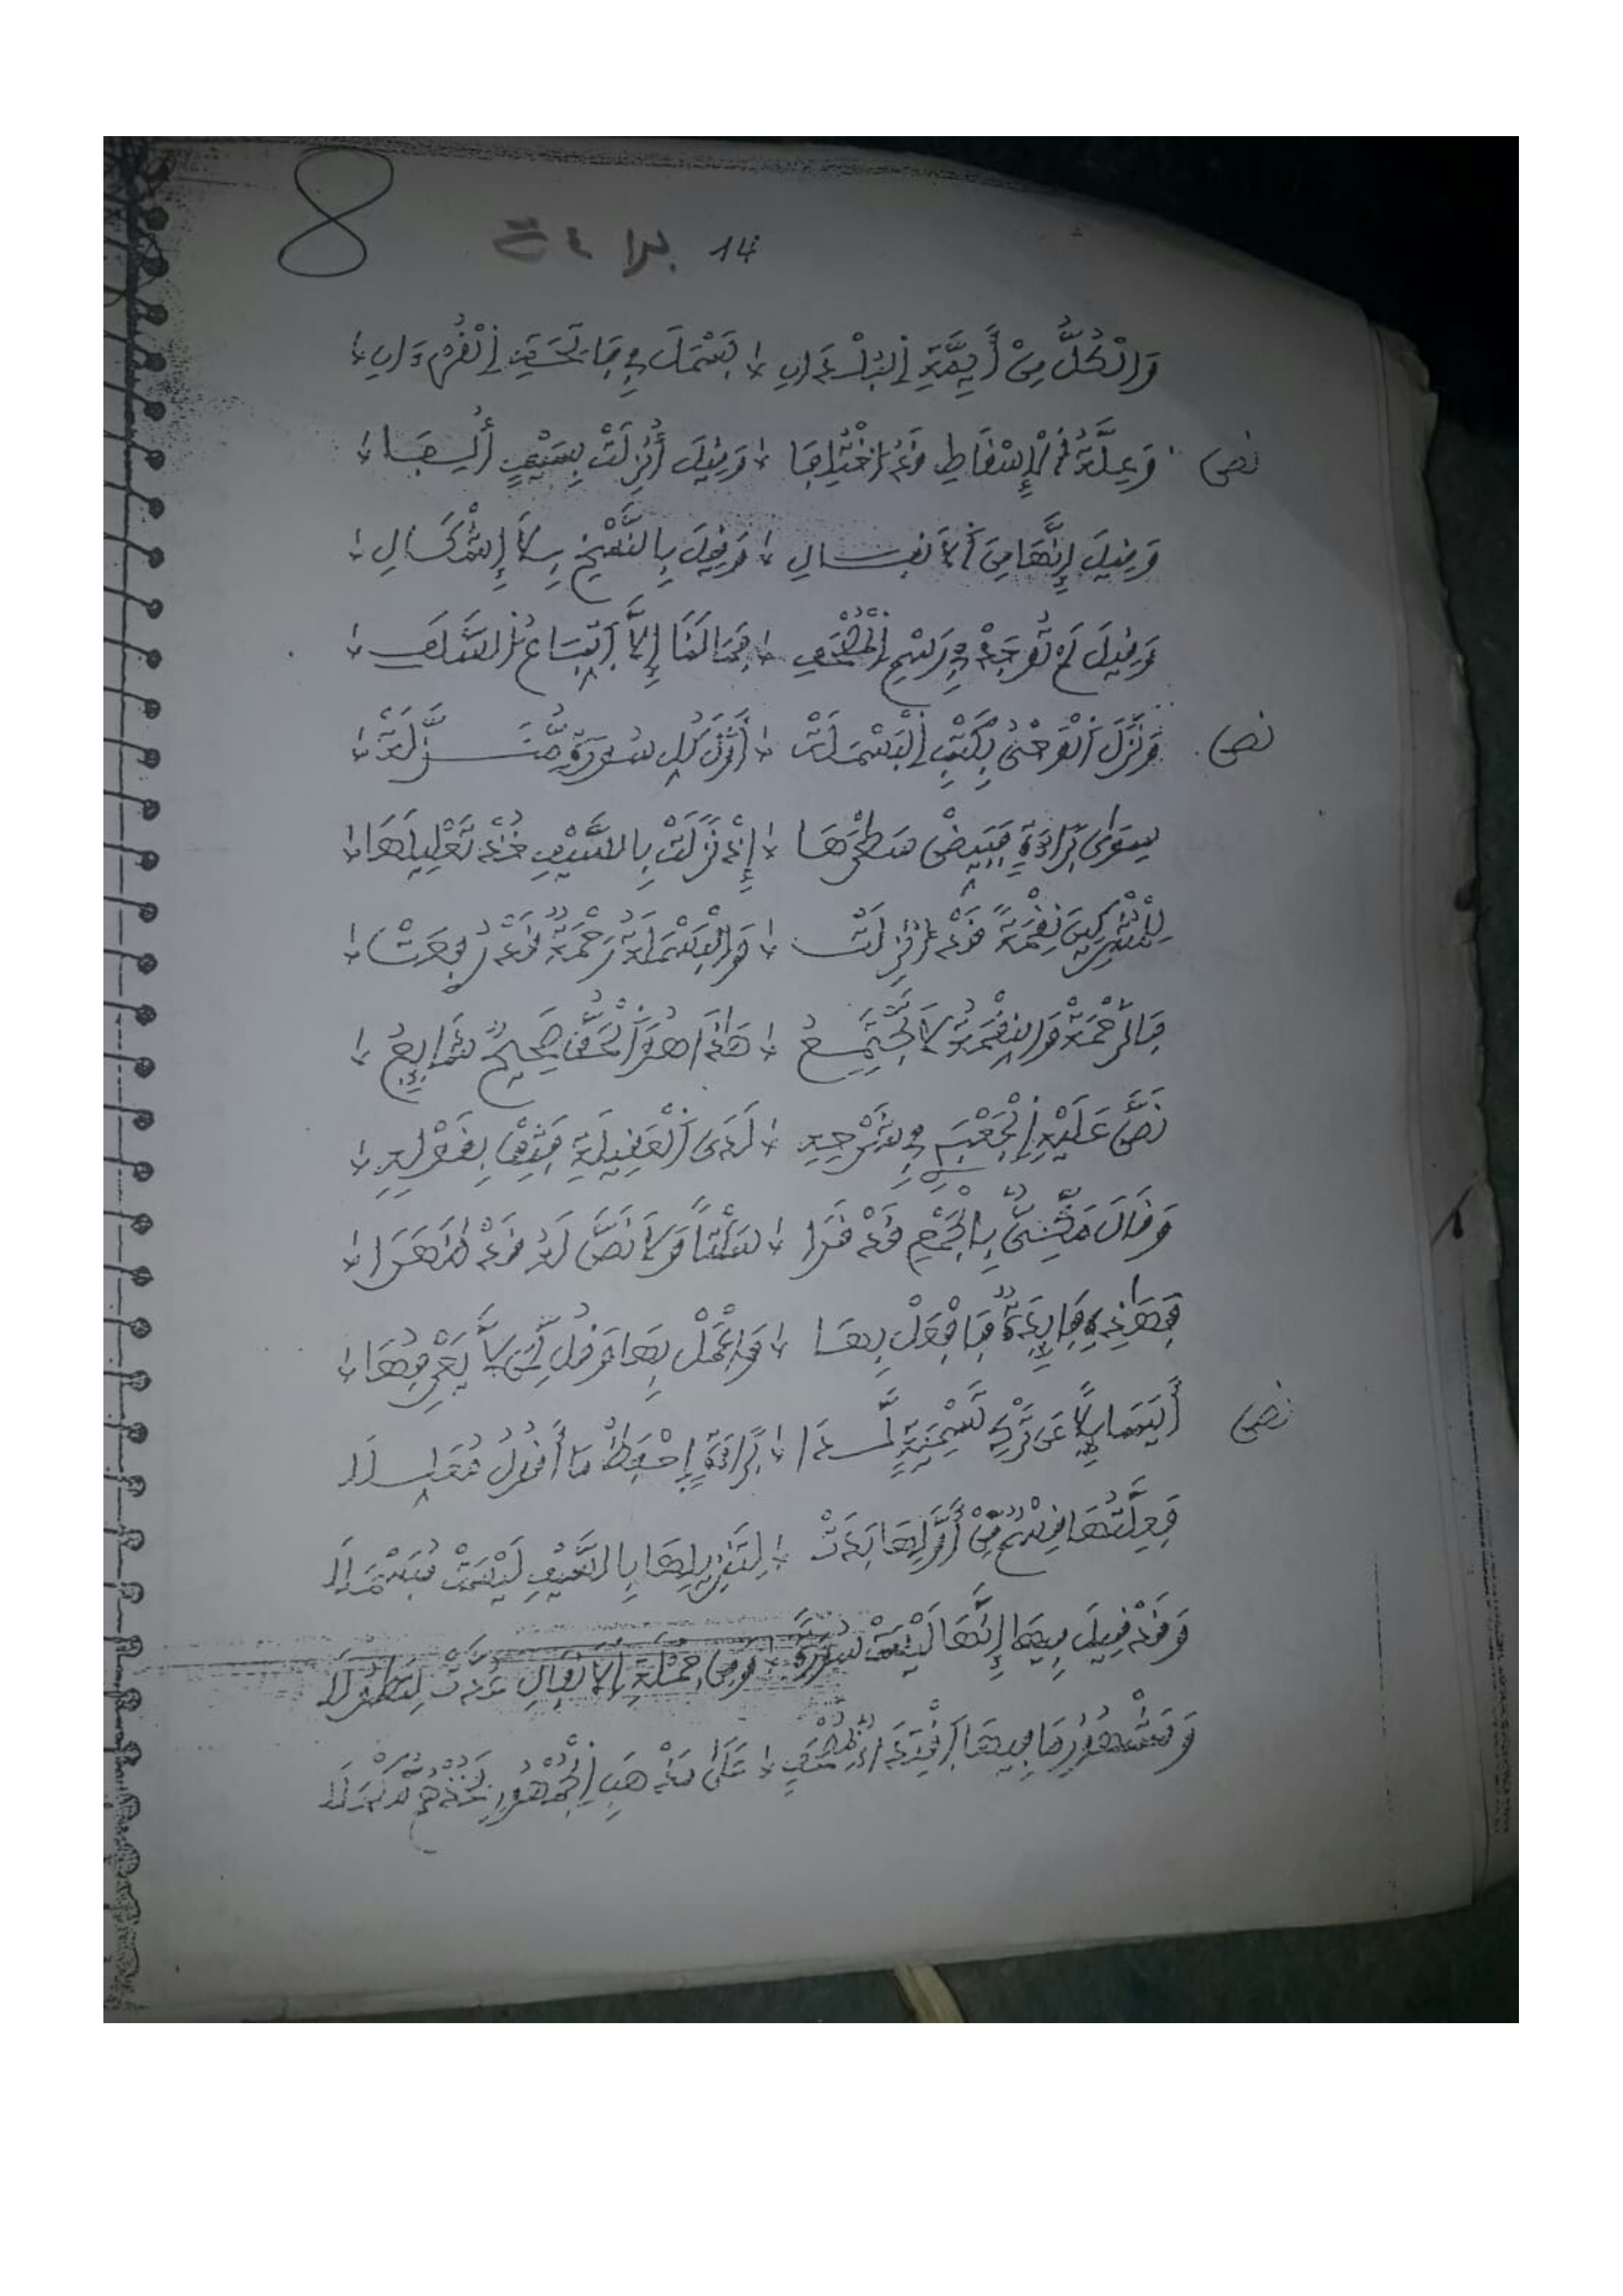 8
14 براءة
وَالْكُلُّ مِنْ أَيِمَّةِ اِلْبُلْدَانِ ؛ بَسْمَلَ فِي فَاتِحَةِ اِلْقُرْءَانِ ؛
نص وَعِلَّةُ اُلْإِسْقَاطِ قَدُ اُخْتُلِفَا ؛ وَقِيلَ أُنْزِلَتْ بِسَيْفٍ أُلِفَا ؛
وَقِيلَ إِنَّهَا مِنَ اَلْأَنفَالِ ؛ وَقِيلَ بِالنَّسْخِ بِلَا إِشْكَالِ ؛
وَقِيلَ لَمْ تُوجَدْ فِي رَسْمِ اِلْمُصْحَفِ ؛ فَمَا لَنَا إِلَّا اَتِّبَاعُ اُلسَّلَفِ ؛
نص وَنَزَلَ اَلْوَحْيُ بِكَتْبِ اِلْبَسْمَلَةْ ؛ أَوَّلَ كُلِّ سُورَةٍ مُّنَزَّلَةْ ؛
سِوَى بَرَاءَةٍ فَبَيِّضْ سَطْرَهَا ؛ إِذْ نَزَلَتْ بِالسَّيْفِ خُذْ تَعْلِيلَهَا ؛
لِلْمُشْرِكِينَ نِقْمَةً قَدْ اُنْزِلَتْ ؛ وَالْبَسْمَلَةُ رَحْمَةٌ قَدْ رُفِعَتْ ؛
فَالرَّحْمَةْ وَالنِّقْمَةُ لَا تَجْتَمِعُ ؛ هَاذَا هُوَ اَلْحَقُّ صَحِيحٌ شَايِعُ ؛
نَصَّ عَلَيْهِ اِلْجَعْبَرِي فِي شَرْحِهِ ؛ لَدَى اَلْعَقِيلَةِ فَثِقْ بِقَوْلِهِ ؛
وَقَالَ مَكِّيٌّ بِالْجَمْعِ قَدْ قَرَا ؛ سَكْتًا وَلَا نَصَّ لَهُ قَدْ اَظْهَرَا ؛
فَهَاذِهِ فَايِدَةٌ فَاحْفَلْ بِهَا ؛ وَاعْمَلْ بِهَا وَقُلْ لِّمَن لَّا يَعْرِفُهَا ؛
نص أَيَا سَايِلًا عَن تَرْكِ تَسْمِيَةٍ لَّدَا ؛ بَرَاءَةٍ اِحْفَظْ مَا أَقُولُ مُقَابِلَا
فَعِلَّتُهَا قِسْمٌ مِّنْ أَوَّلِهَا بَدَتْ ؛ لِتَنزِيلِهَا بِالسَّيْفِ لَيْسَتْ مُبَسْمَلَا
وَقَدْ قِيلَ فِيهَا إِنَّهَا لَيْسَتْ سُورَةً ؛ وَمِن جُمْلَةِ اِلْأَنفَالِ عُدَّتْ لِتَطُولَا
وَمَشْهُورُ مَا فِيهَا اَقْتِدَاءُ اُلْمُصْحَفِ ؛ عَلَى مَذْهَبِ اِلْجُمْهُورِ